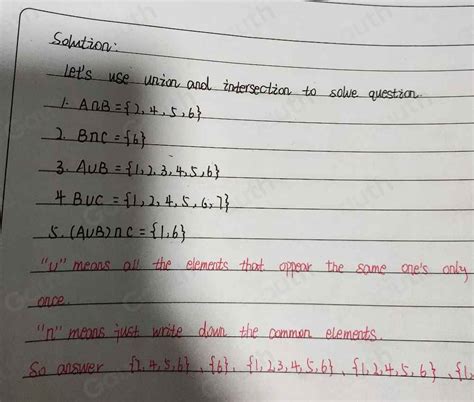 Solution:
let's use union and intersection to solve question.
1. A∩B = {2, 4, 5, 6}
2. B∩C = {6}
3. A∪B = {1, 2, 3, 4, 5, 6}
4 B∪C = {1, 2, 4, 5, 6, 7}
5. (A∪B)∩C = {1, 6}
"U" means all the elements that appear the same one's only
once.
"n" means just write down the common elements.
So answer {2, 4, 5, 6}, {6}, {1, 2, 3, 4, 5, 6}, {1, 2, 4, 5, 6}, {1,